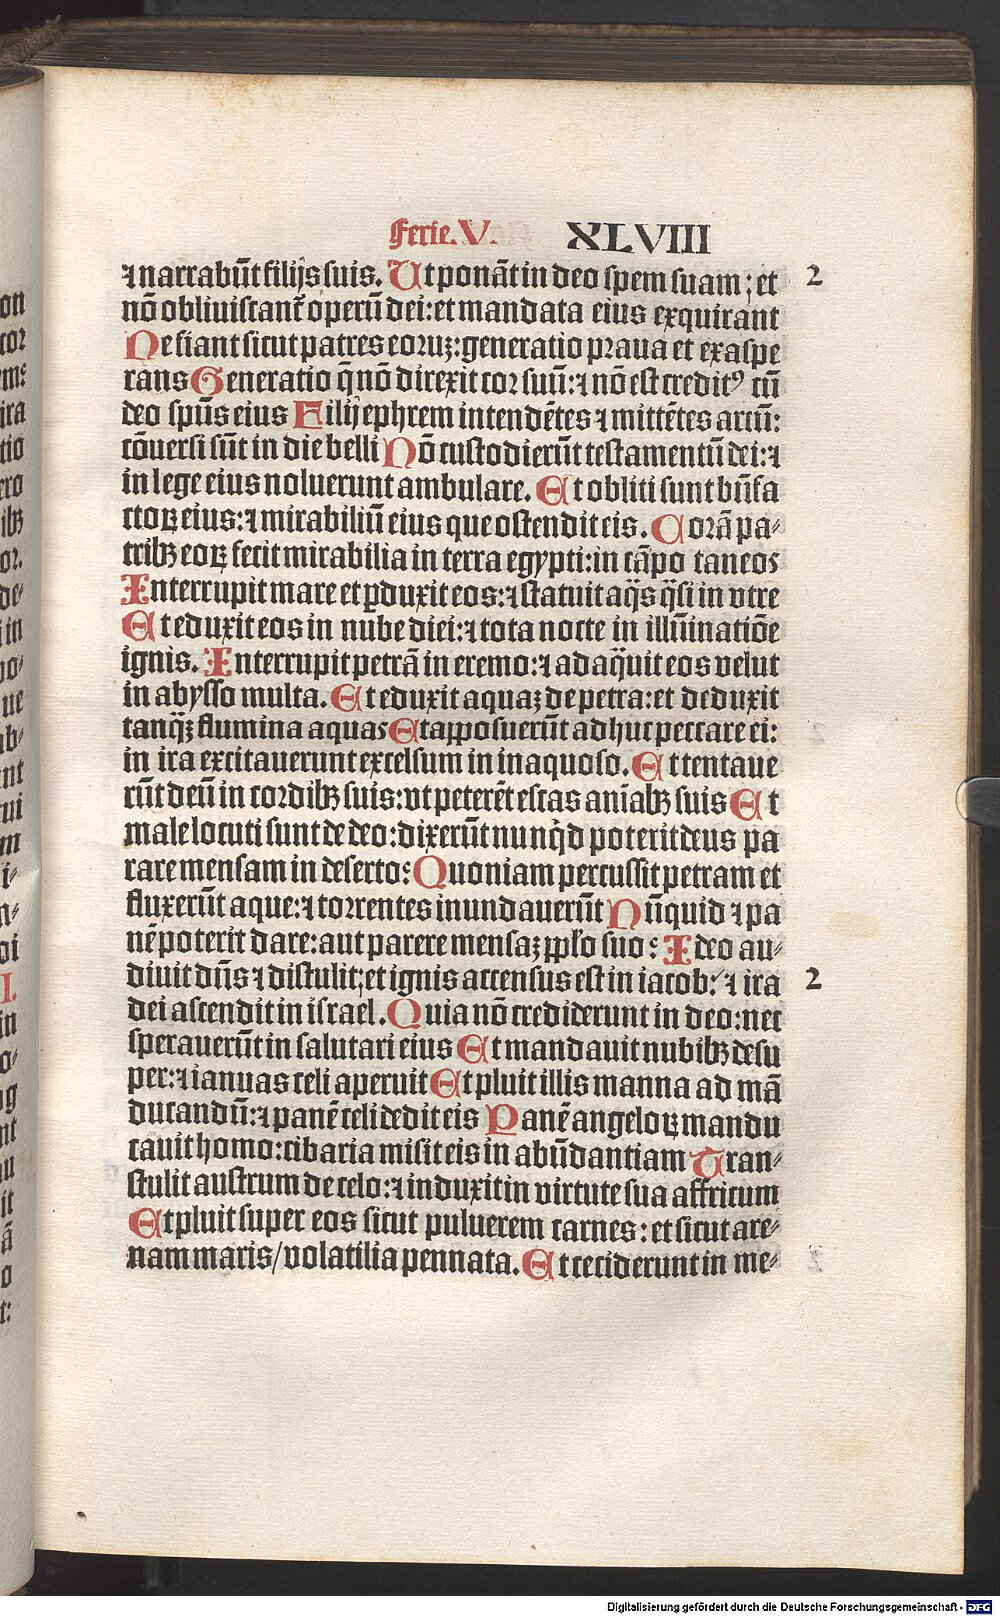 Ferie. V. XLVIII
⁊ narrabūt filijs suis. Ut ponāt in deo spem suam; et 2
nō obliuiscantˀ operū dei: et mandata eius exquirant
Ne fiant sicut patres eoruꝫ: generatio praua et exaspe
rans Generatio q̄ nō direxit cor suū: ⁊ nō est creditꝰ cū
deo spūs eius Filij ephrem intendētes ⁊ mittētes arcū:
cōuersi sūt in die belli Nō custodierūt testamentū dei: ⁊
in lege eius noluerunt ambulare. Et obliti sunt bn̄fa
ctoꝝ eius: ⁊ mirabiliū eius que ostendit eis. Corā pa⸗
tribꝫ eoꝝ fecit mirabilia in terra egypti: in cāpo taneos
Interrupit mare et ꝑduxit eos: ⁊ statuit aq̄s q̄si in vtre
Et eduxit eos in nube diei: ⁊ tota nocte in illūinatiōe
ignis. Interrupit petrā in eremo: ⁊ adaq̄uit eos velut
in abysso multa. Et eduxit aquaꝫ de petra: et deduxit
tanq̄ꝫ flumina aquas Et apposuerūt adhuc peccare ei:
in ira excitauerunt excelsum in inaquoso. Et tentaue
rūt deū in cordibꝫ suis: vt peterēt escas aniabꝫ suis Et
male locuti sunt de deo: dixerūt nunq̇d poterit deus pa
rare mensam in deserto: Quoniam percussit petram et
fluxerūt aque: ⁊ torrentes inundauerūt Nūquid ⁊ pa
nē poterit dare: aut parere mensaꝫ pplo suo: Ideo au⸗
diuit dn̄s ⁊ distulit; et ignis accensus est in iacob: ⁊ ira 2
dei ascendit in israel. Quia nō crediderunt in deo: nec
sperauerūt in salutari eius Et mandauit nubibꝫ desu
per: ⁊ ianuas celi aperuit Et pluit illis manna ad mā
ducandū: ⁊ panē celi dedit eis Panē angeloꝝ mandu
cauit homo: cibaria misit eis in abūdantiam Tran⸗
stulit austrum de celo: ⁊ induxit in virtute sua affricum
Et pluit super eos sicut puluerem carnes: et sicut are⸗
nam maris/ volatilia pennata. Et ceciderunt in me⸗
Digitalisierung gefördert durch die Deutsche Forschungsgemeinschaft - DFG